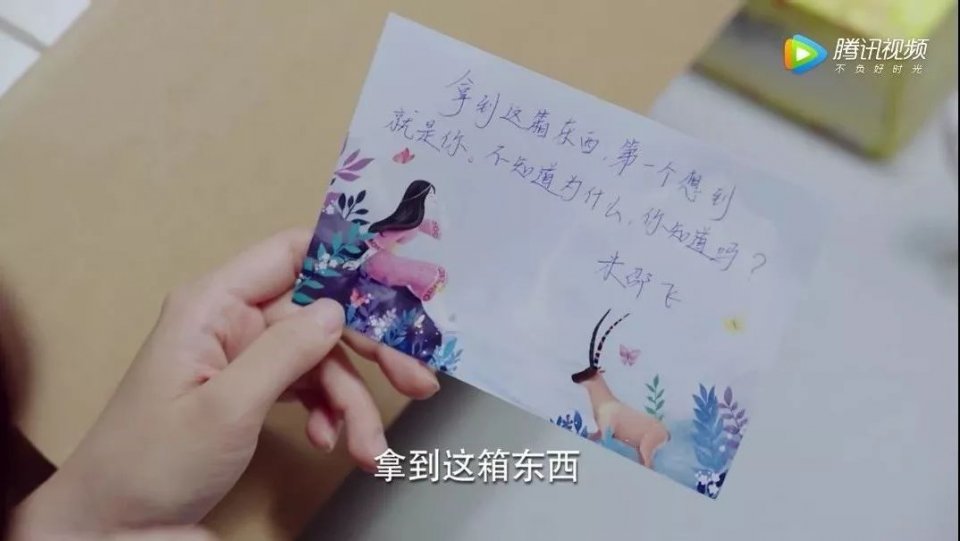 腾讯视频
不负好时光
拿到这箱东西，第一个想到
就是你。不知道为什么，你知道吗？
米邵飞
拿到这箱东西